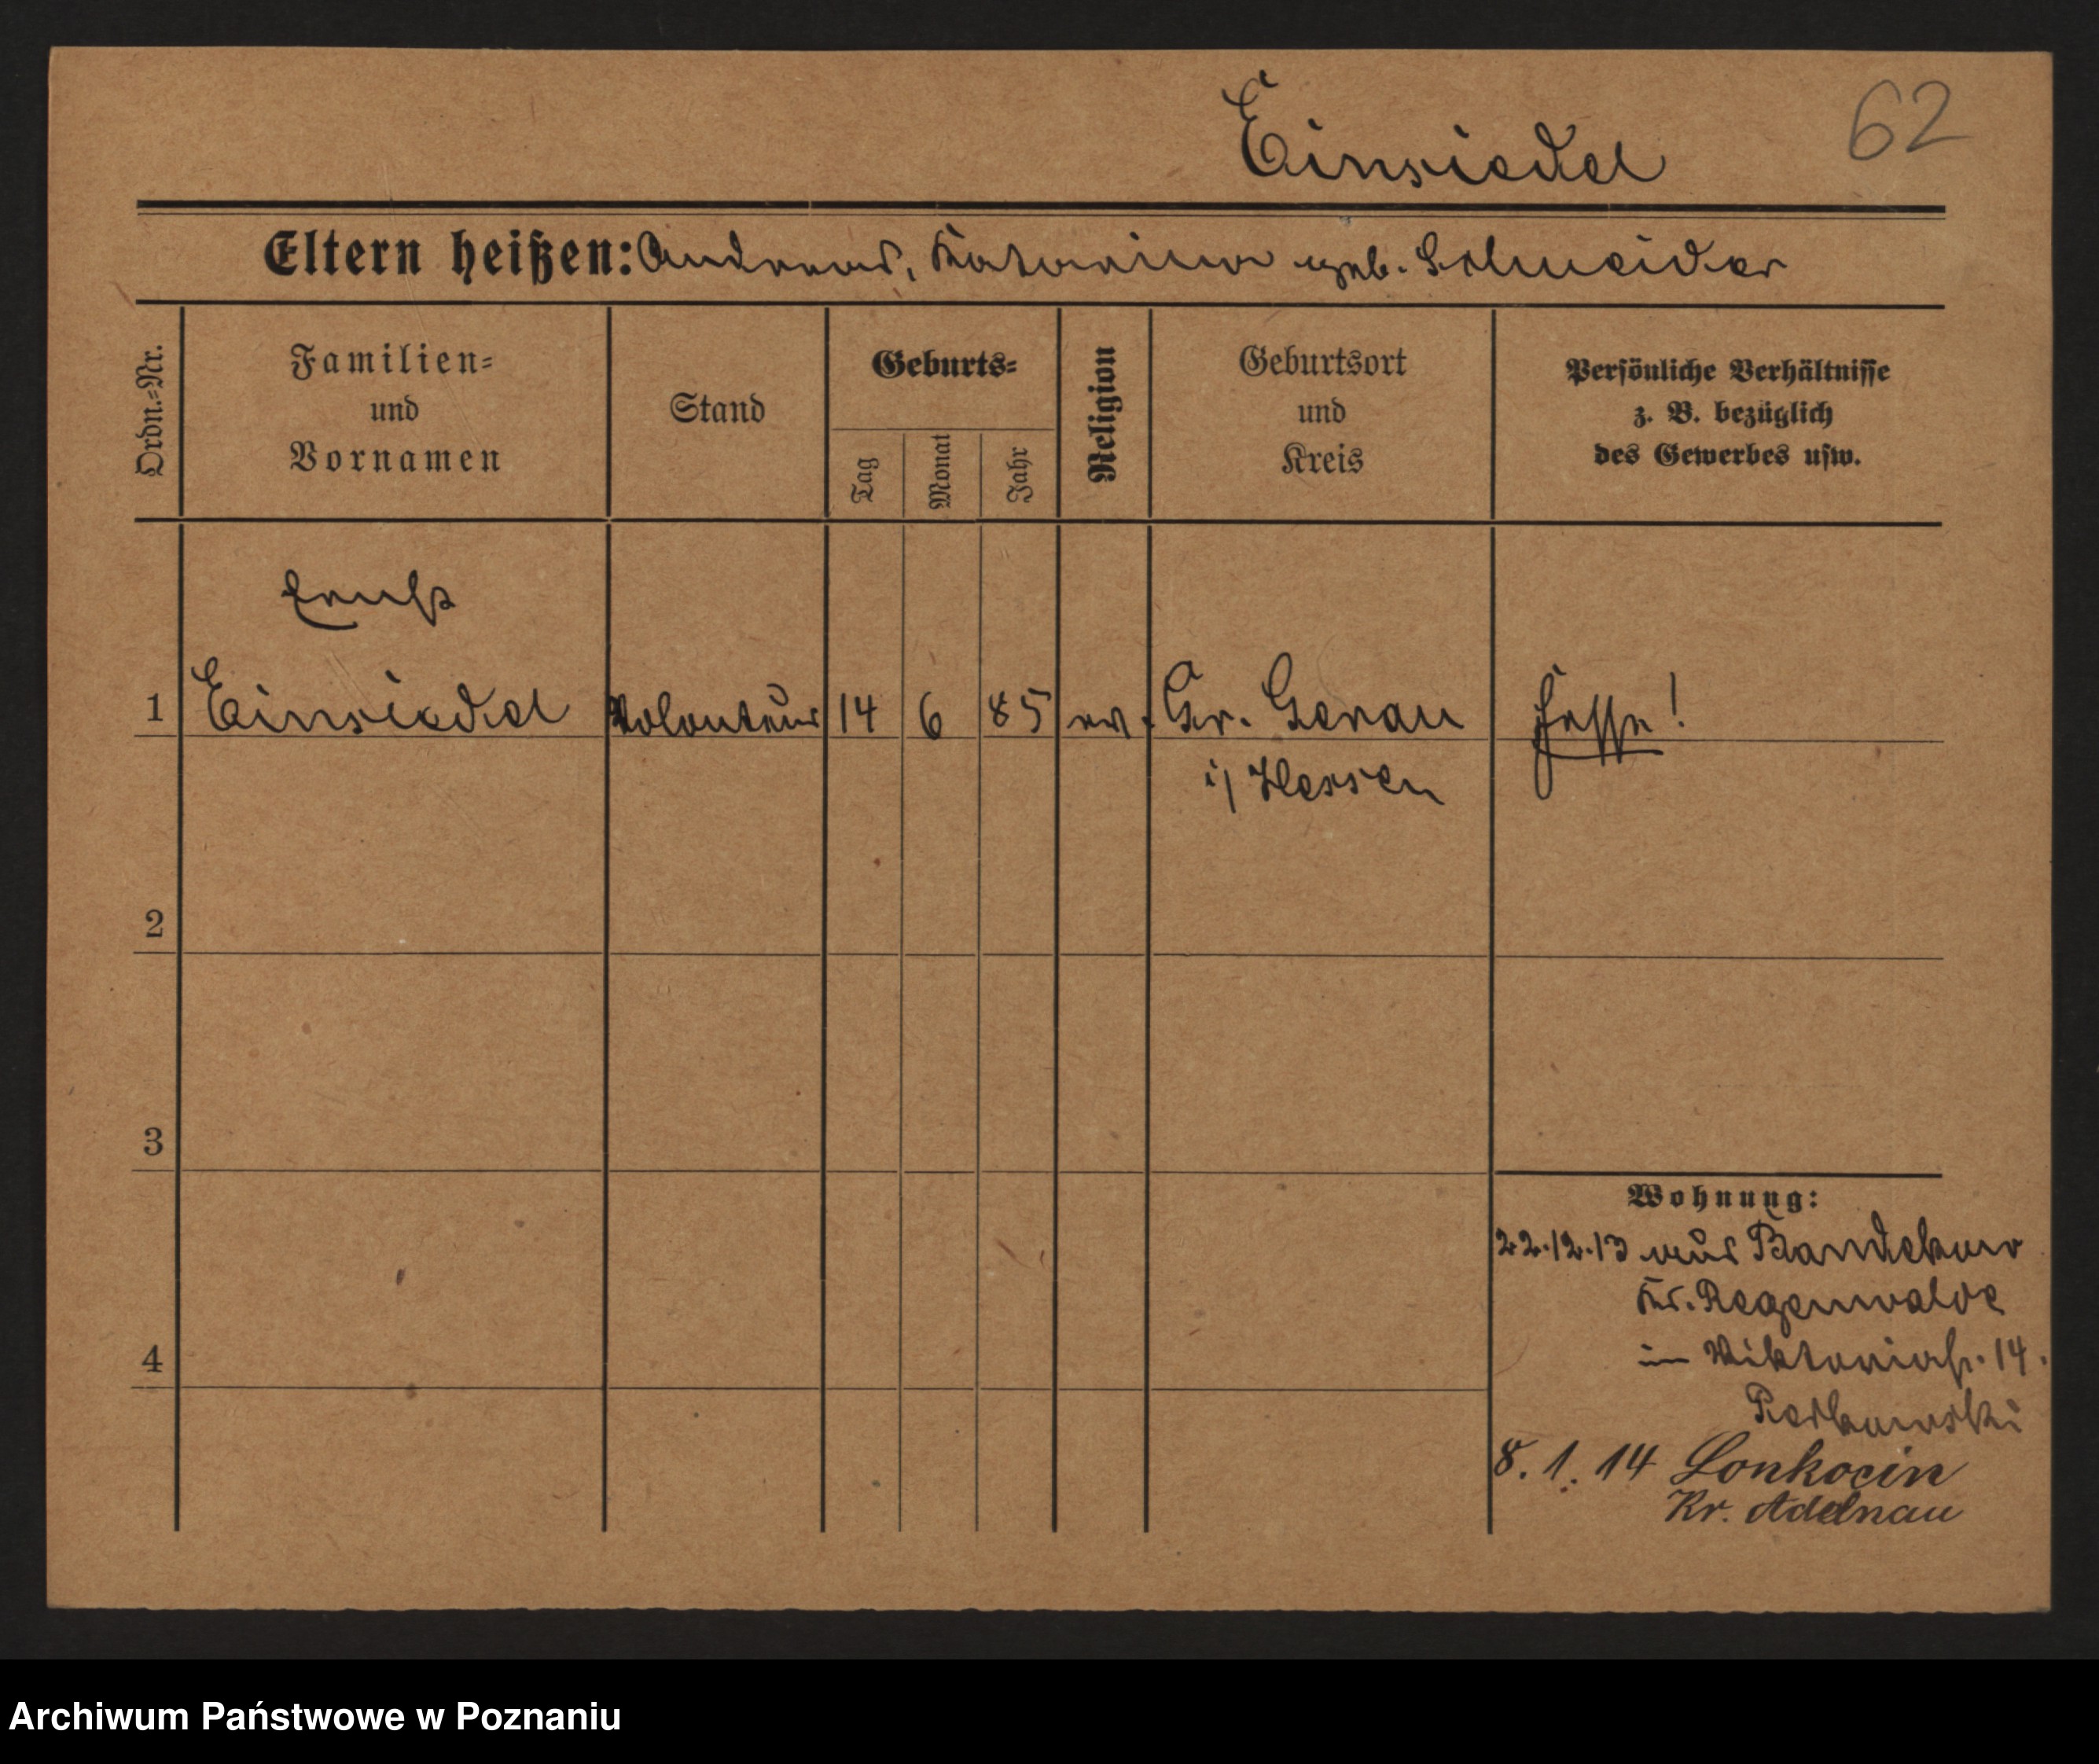 Einsiedel
62
Eltern heißen: Andreas, Katarina geb. Schneider
Ordn.-Nr.
Familien-
und
Vornamen
Stand
Geburts-
Tag
Monat
Jahr
Religion
Geburtsort
und
Kreis
Persönliche Verhältnisse
z. B. bezüglich
des Gewerbes usw.
Ernst
1 Einsiedel Volontär 14 6 85 ev. Gr. Gerau Hesse!
i/ Hessen
2
3
4
Wohnung:
22.12.13 aus
Kr. Regenwalde
Viktoriastr. 14.
8. 1. 14 Lonkocin
Kr. Adelnau
Archiwum Państwowe w Poznaniu